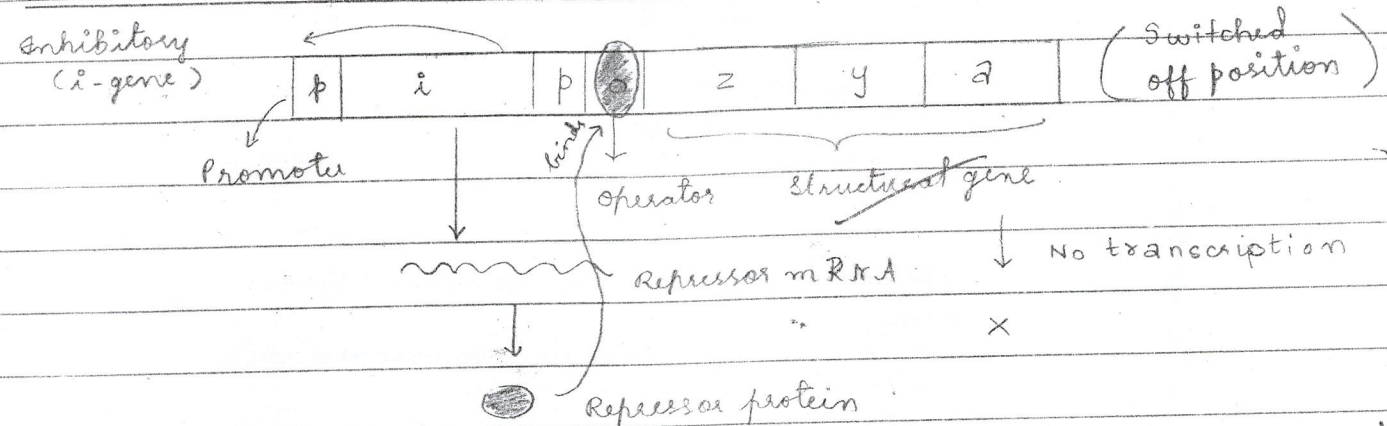 Inhibitory
(i-gene)
p i p o z y a
(Switched
off position)
Promoter
binds
operator
Structural gene
No transcription
Repressor mRNA
×
Repressor protein